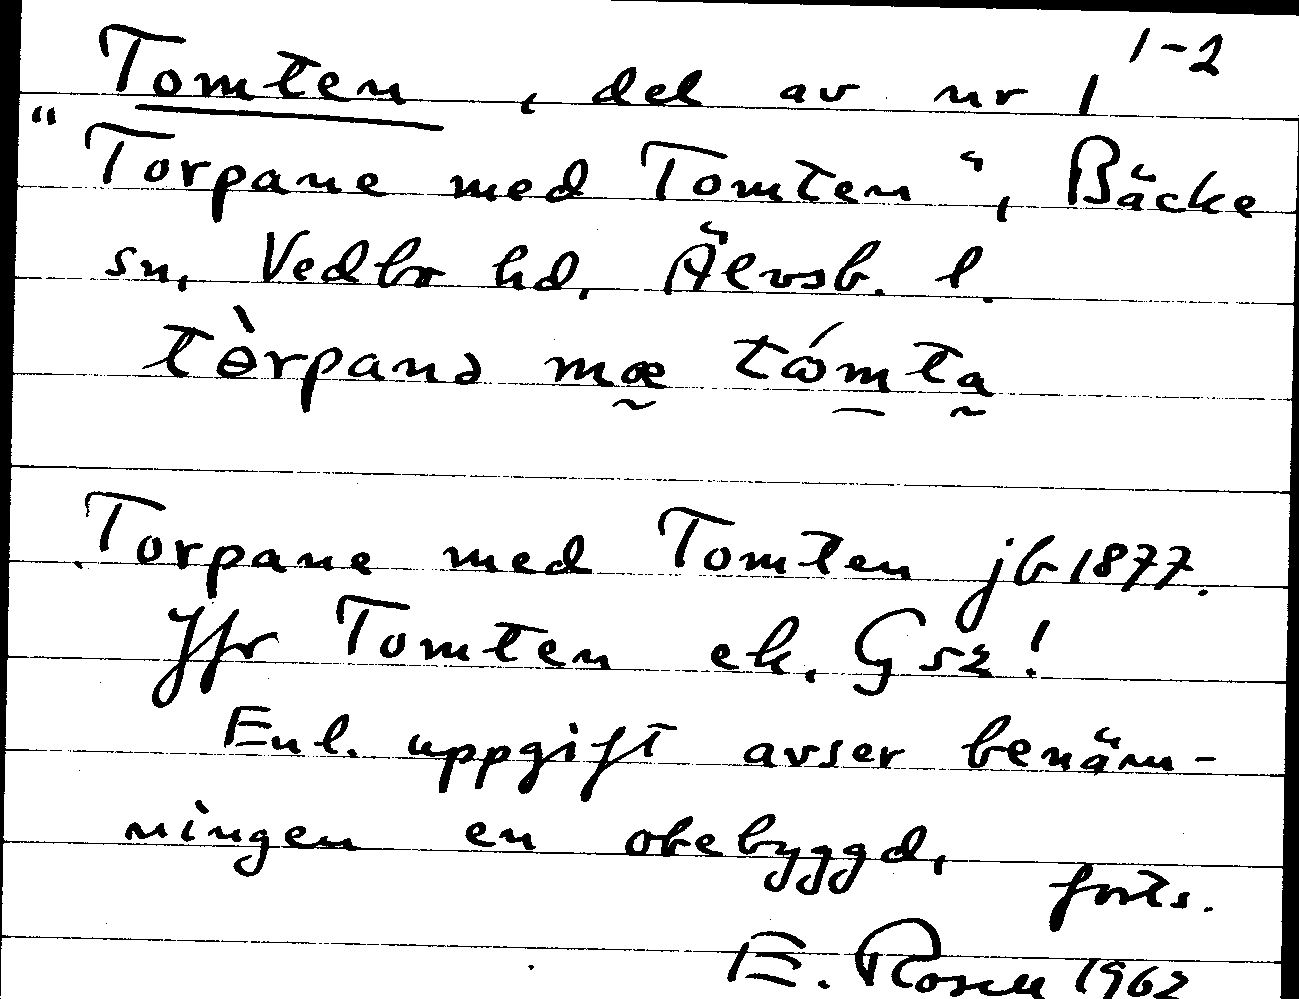 Tomten, del av nr 1 1-2
"Torpane med Tomten", Bäcke
sn, Vedbo hd, Älvsb. l.
tɵ̀rpanə mæ̰ tǿmta̰
Torpane med Tomten jb 1877.
Jfr Tomten ek. Gsz!
Enl. uppgift avser benäm-
ningen en obebyggd, forts.
E. Rosell 1962